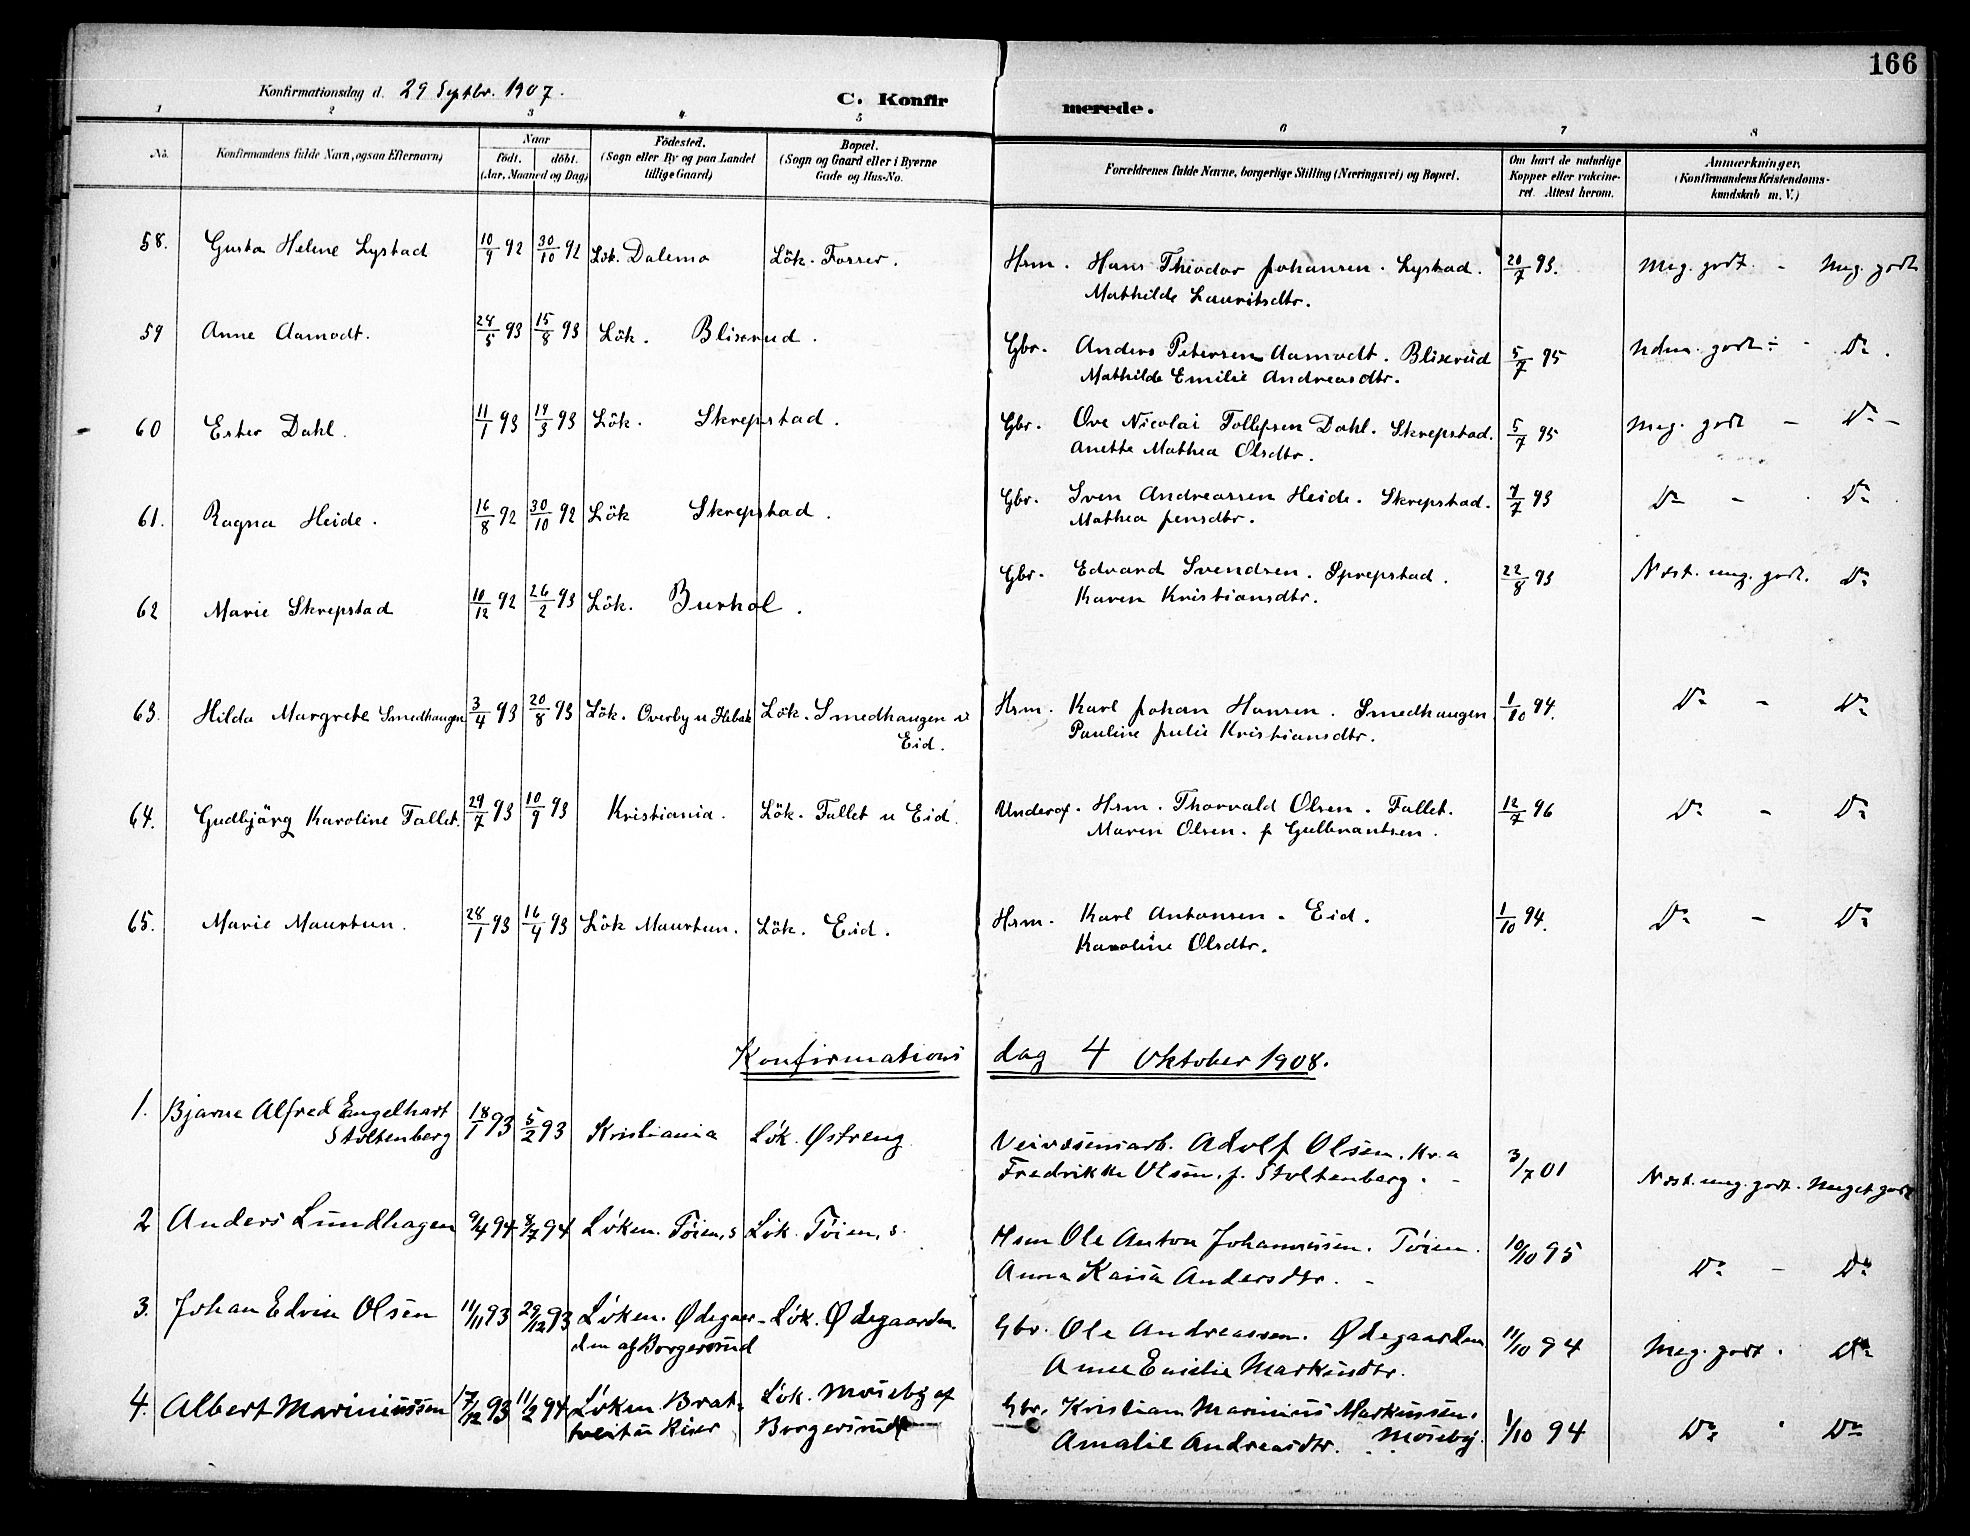 166
Konfirmationsdag d. 29 Septbr. 1907.
C. Konfirmerede.
1 2 3 4 5 6 7 8
No.
Konfirmandens fulde Navn, ogsaa Efternavn)
Naar
født. døbt.
(Aar, Maaned og Dag)
Fødested.
(Sogn eller By og paa Landet
tillige Gaard)
Bopæl.
(Sogn og Gaard eller i Byerne
Gade og Hus-No.
Forældrenes fulde Navne, borgerlige Stilling (Næringsvei) og Bopæl.
Om havt de naturlige
Kopper eller vakcine-
ret. Attest herom.
Anmærkninger.
(Konfirmandens Kristendoms-
kundskab m. V.)
58. Gusta Helene Lystad 10/9 92 30/10 92 Lök. Dalemo Lök. Forrer. Hsm. Hans Theodor Johansen. Lystad. 20/7 93. Meg. godt. - Meg. godt
Mathilde Lauritsdtr.
59 Anne Aamodt. 24/5 93 15/8 93 Lök. Blixrud. Gbr. Anders Petersen Aamodt. Blixrud 5/7 95 Udm. godt - Do.
Mathilde Emilie Andreasdtr.
60 Ester Dahl. 11/1 93 19/3 93 Lök. Skrepstad. Gbr. Ove Nicolai Tollefsen Dahl. Skrepstad. 5/7 95 Meg. godt - Do -
Anette Mathea Olsdtr.
61. Ragna Heide. 16/8 92 30/10 92 Lök Skrepstad. Gbr. Sven Andreassen Heide. Skrepstad. 7/7 93 Do - Do
Mathea Jensdtr.
62 Marie Skrepstad 10/12 92 26/2 93 Lök. Burhol. Gbr. Edvard Svendsen. Sprepstad. 22/8 93 Næst. meg. godt. Do
Karen Kristiansdtr.
63. Hilda Margrete Smedhaugen 3/4 93 20/8 93 Lök. Overby u Lök. Smedhaugen u Hsm. Karl Johan Hansen. Smedhaugen 1/10 94. Do - Do
Eid. Pauline Julie Kristiansdtr.
64. Gudbjörg Karoline Fallet. 29/7 93 10/9 93 Kristiania. Lök. Fallet u Eid. Underof. Hsm. Thorvald Olsen. Fallet. 12/7 96 Do - Do
Maren Olsen. f Gulbrantsen.
65. Marie Maurtun. 28/1 93 16/4 93 Lök Maurtun. Lök. Eid. Hsm. Karl Antonsen. Eid. 1/10 94. Do - Do
Karoline Olsdtr.
Konfirmationsdag 4 Oktober 1908.
1. Bjarne Alfred Engelhart 18/1 93 5/2 93 Kristiania Løk. Østreng Veivæsensarb. Adolf Olsen. Kr.a 3/7 01 Næst. meg. godt. Meget godt
Stoltenberg Fredrikke Olsen. f. Stoltenberg. -
2 Anders Lundhagen 9/4 94 8/7 94 Løken. Tøien, s Løk. Tøien, s. Hsm Ole Anton Johannesen. Tøien. 10/10 95 Do - Do
Anna Kaisa Andersdtr. -
3. Johan Edvin Olsen 11/11 93 29/12 93 Løken. Ødegaar- Løk. Ødegaarden Gbr. Ole Andreassen. Ødegaarden 11/10 94 Meg. godt. Do
den af Borgersrud Anne Emilie Markusdtr.
4. Albert Mariniussen 17/12 93 11/2 94 Løken Brat- Løk. Moseby af Gbr. Kristian Marinius Markussen. 1/10 94 Do - Do
tveit u Riser Borgersrud Amalie Andreasdtr. Moseby.